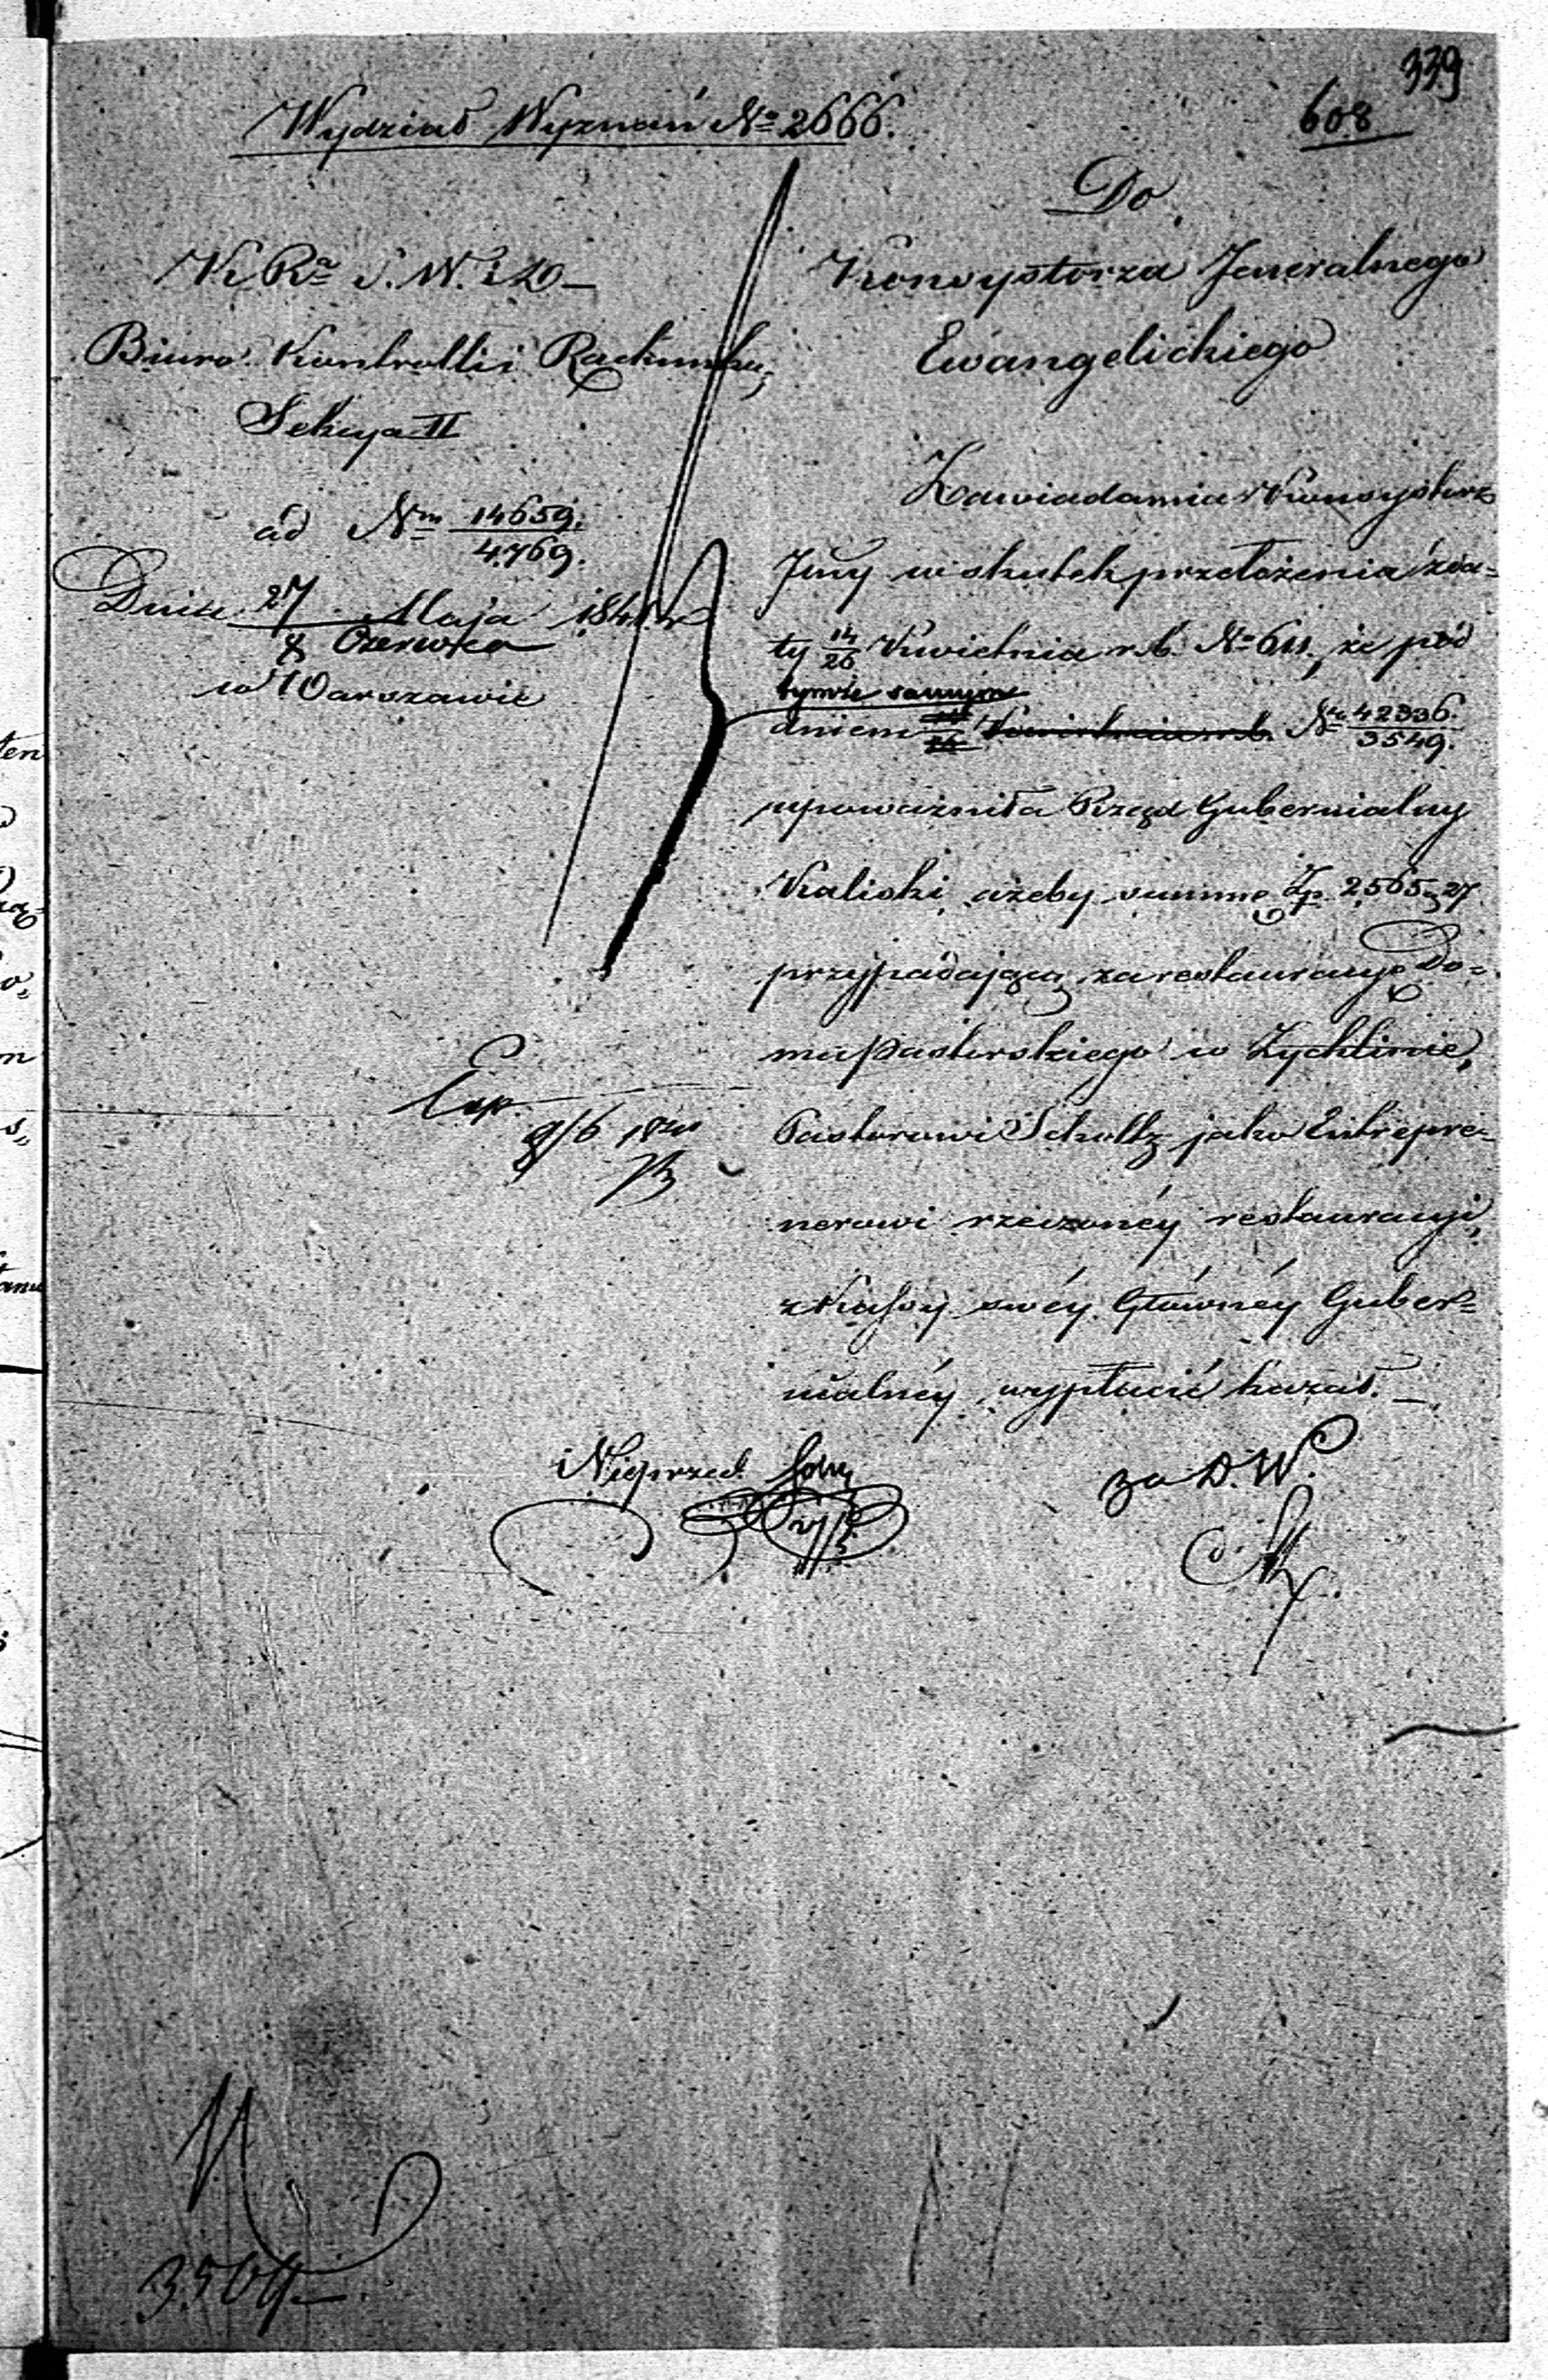 339
608
Wydział Wyznań No 2666.
K. Ra S. W. i D –
Biuro Kontrolli Rachunku,
Sekcya II
ad Nm 14659./4769.
Dnia 27 Maja/8 Czerwca 184 r
w Warszawie
Do
Konsystorza Jeneralnego
Ewangelickiego
Zawiadamia Konsystorz
Jlny w skutek przełożenia z da=
ty 14/26 Kwietnia r. b. No 611, że pod
tymże samym
dniem 14/26 Kwietnia r. b. Nr 42336./3549.
upoważniła Rząd Gubernialny
Kaliski, ażeby summę Zp. 2565, 27
przypadającą za restauracyę Do=
mu Pastorskiego w Zychlinie,
Pastorowi Scholtz jako Entrepre=
nerowi rzeczonéj restauracyi,
z Kassy swéy Głównéy Guber=
nialnéy wypłacić kazał. –
Exp.
8/6 184
Nieprzed.
za D. W.